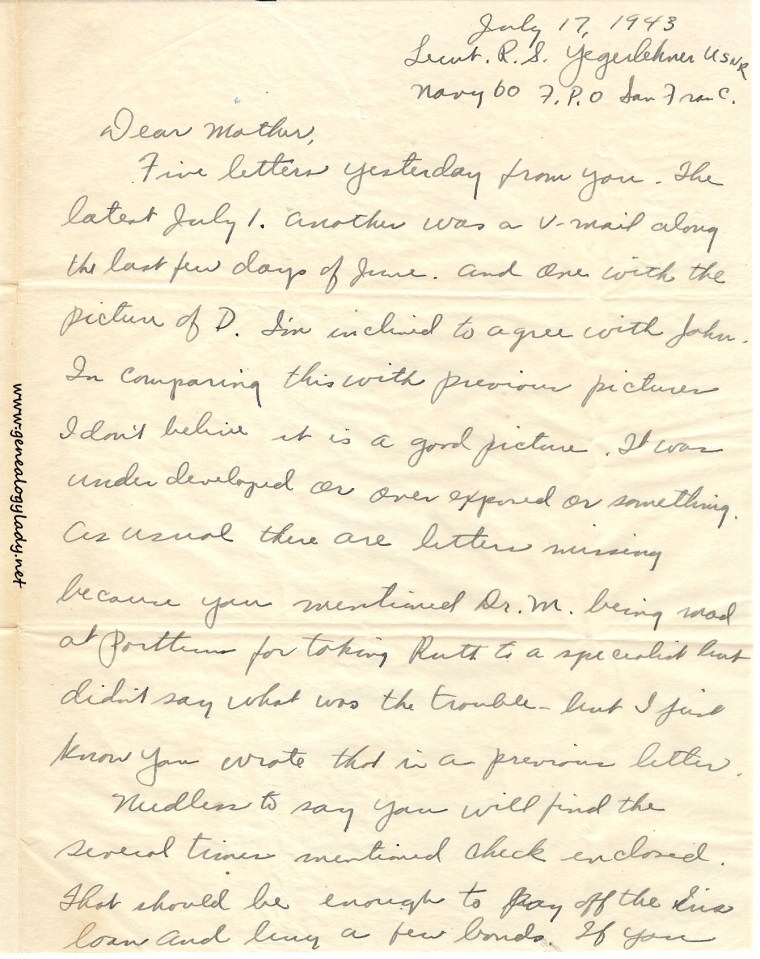 July 17, 1943
Lieut. R. S. Yegerlehner USNR
Navy 60 F.P.O San Fran C.
Dear Mother,
Five letters yesterday from you. The
latest July 1. Another was a V-mail along
the last few days of June. And one with the
picture of D. I'm inclined to agree with John.
In comparing this with previous pictures
I don't belive it is a good picture. It was
under developed or over exposed or something.
As usual there are letters missing
because you mentioned Dr. M. being mad
at for taking Ruth to a specialist but
didn't say what was the trouble - but I just
know you wrote that in a previous letter.
Needless to say you will find the
several times mentioned check enclosed.
That should be enough to pay off the Ins
loan and buy a few bonds. If you
www.genealogylady.net